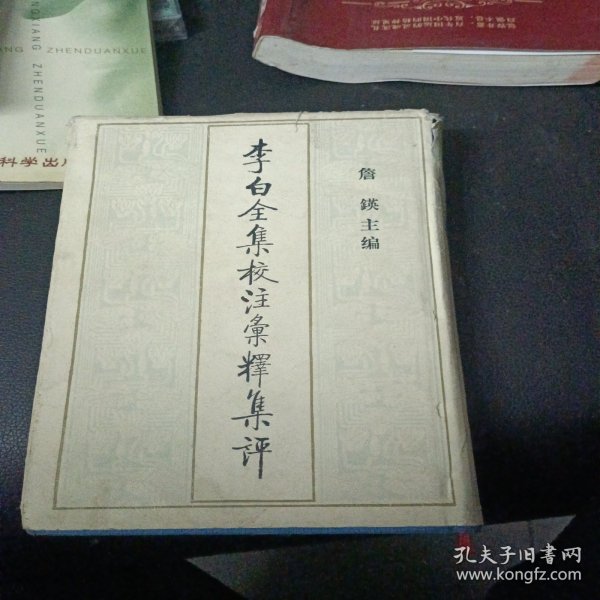 李白全集校注彙釋集評
詹鍈主编
ZHENDUANXUE
ZHENDUANXUE
科学出
孔夫子旧书网
www.kongfz.com